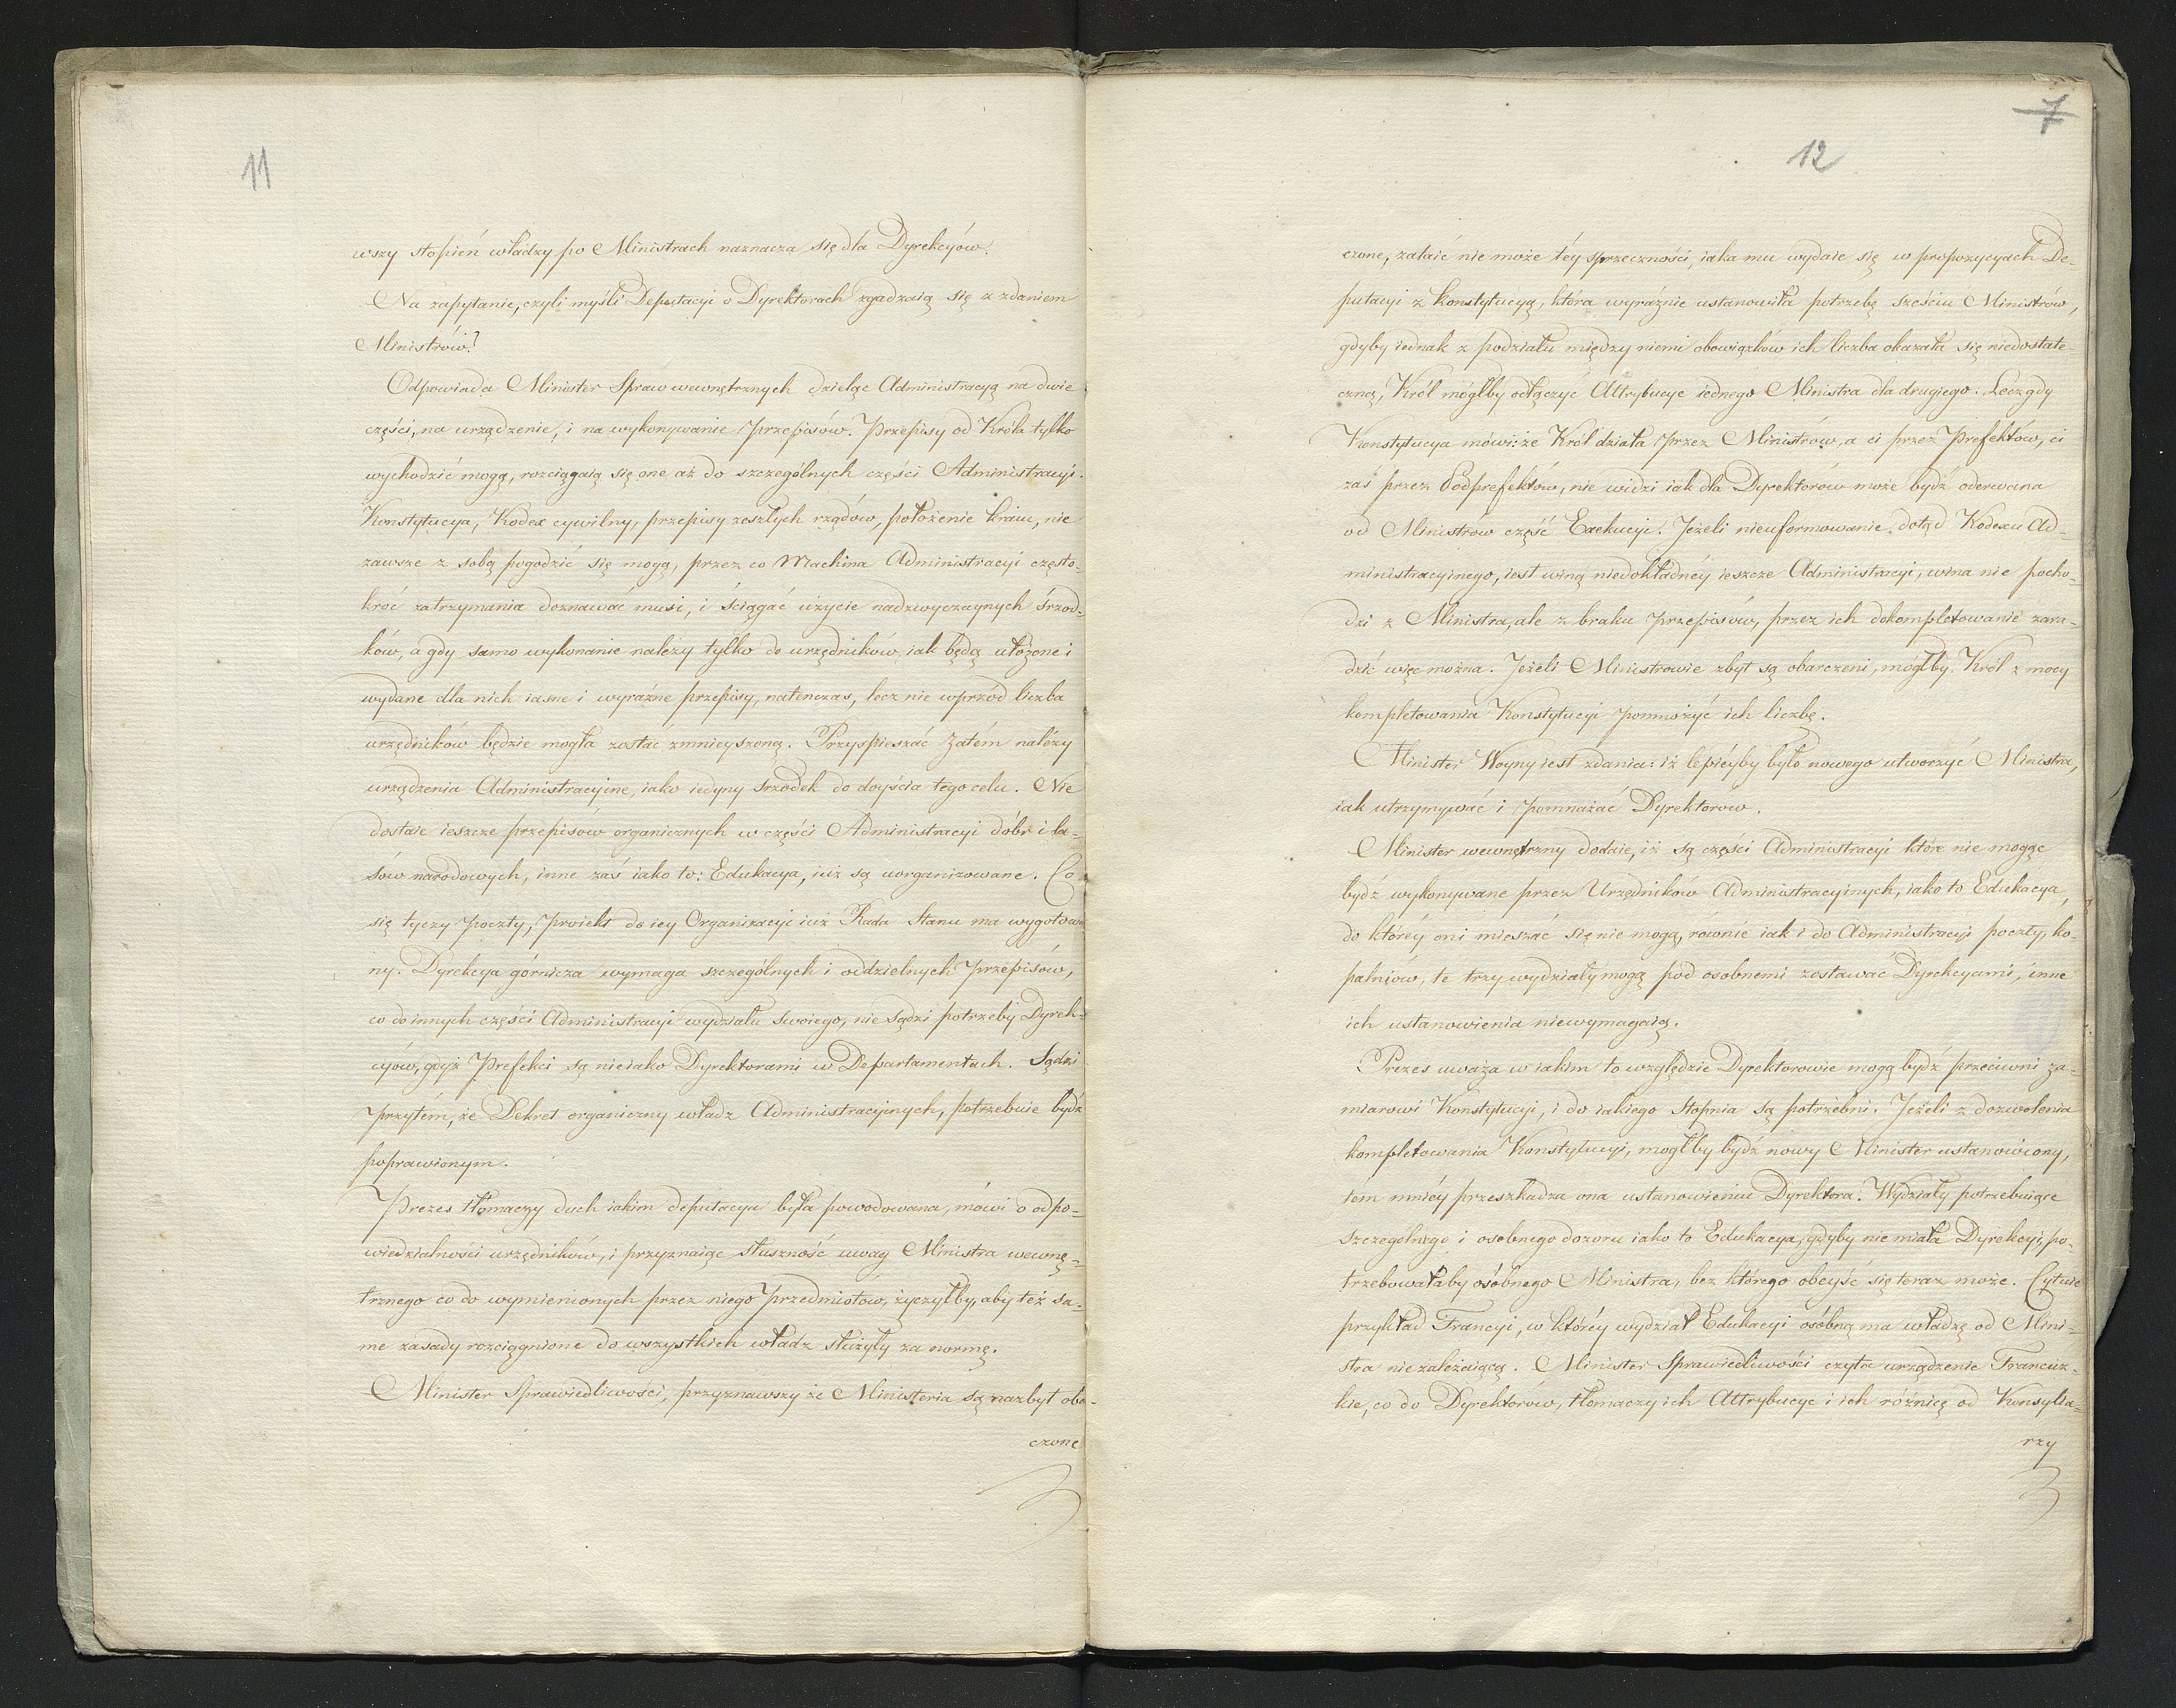 11
wszy stopień władzy po Ministrach naznacza się dla Dyrekcyów.
Na zapytanie, czyli myśli Deputacyi o Dyrektorach zgadzaią się z zdaniem
Ministrów?
Odpowiada Minister Spraw wewnętrznych dzieląc Administracyą na dwie
części, na urządzenie, i na wykonywanie przepisów. Przepisy od Króla tylko
wychodzić mogą, rozciągaią się one aż do szczególnych części Administracyi.
Konstytucya, Kodex cywilny, przepisy zeszłych rządów, położenie kraiu, nie
zawsze z sobą pogodzić się mogą, przez co Machina Administracyi często-
kroć zatrzymania doznawać musi, i ściągać użycie nadzwyczaynych śrzod-
ków, a gdy samo wykonanie należy tylko do urzędników, iak będą ułożone i
wydane dla nich iasne i wyraźne przepisy, natenczas, lecz nie wprzód liczba
urzędników będzie mogła zostać zmnieyszoną. Przyspieszać zatém należy
urządzenia Administracyine, iako iedyny srzodek do doyścia tego celu. Nie
dostaie ieszcze przepisów organicznych w części Administracyi dóbr i la-
sów narodowych, inne zaś iako to: Edukacya, iuż są uorganizowane. Co
się tyczy poczty, proiekt do iey Organizacyi iuż Rada Stanu ma wygotowa
ny. Dyrekcya górnicza wymaga szczególnych i oddzielnych przepisów,
co do innych części Administracyi wydziału swoiego, nie sądzi potrzeby Dyrek-
cyów, gdyż Prefekci są nieiako Dyrektorami w Departamentach. Sądzi
przytém, że Dekret organiczny władz Administracyinych, potrzebuie bydź
poprawionym.
Prezes tłomaczy duch iakim deputacya była powodowana, mówi o odpo-
wiedzialności urzędników, i przyznaiąc słuszność uwag Ministra wewnę-
trznego co do wymienionych przez niego przedmiotów, życzyłby, aby też sa-
me zasady rozciągnione do wszystkich władz służyły za normę.
Minister Sprawiedliwości, przyznawszy że Ministeria są nazbyt obar-
czone
7
12
czone, zataić nie może téy sprzeczności, iaka mu wydaie się w propozycyach De-
putacyi z Konstytucyą, która wyraźnie ustanowiła potrzebę sześciu Ministrów,
gdyby iednak z podziału między niemi obowiązków ich liczba okazała się niedostate-
czną, Król mógłby odłączyć Attrybucye iednego Ministra dla drugiego. Lecz gdy
Konstytucya mówi: że Król działa przez Ministrów, a ci przez Prefektów, ci
zaś przez Podprefektów, nie widzi iak dla Dyrektorów może bydź oderwana
od Ministrów część Exekucyi. Jeżeli nieuformowanie dotąd Kodexu Ad-
ministracyinego, iest winą niedokładnéy ieszcze Administracyi, wina nie pocho-
dzi z Ministra, ale z braku przepisów, przez ich dokompletowanie zara-
dzić więc można. Jeżeli Ministrowie zbyt są obarczeni, mógłby Król z mocy
kompletowania Konstytucyi pomnożyć ich liczbę.
Minister Woyny iest zdania: iż lepiéyby było nowego utworzyć Ministra,
iak utrzymywać i pomnażać Dyrektorow.
Minister wewnętrzny dodaie, iż są części Administracyi które nie mogąc
bydź wykonywane przez Urzędników Administracyinych, iako to Edukacya,
do któréy oni mieszać się nie mogą, równie iak i do Administracyi poczty, ko-
palniów, te trzy wydziały mogą pod osobnemi zostawać Dyrekcyami, inne
ich ustanowienia niewymagaią.
Prezes uważa w iakim to względzie Dyrektorowie mogą bydź przeciwni za-
miarowi Konstytucyi, i do iakiego stopnia są potrzebni. Jeżeli z dozwolenia
kompletowania Konstytucyi, mogłby bydź nowy Minister ustanowiony,
tém mniéy przeszkadza ona ustanowieniu Dyrektora. Wydziały potrzebuiące
szczególnego i osobnego dozoru iako to Edukacya, gdyby nie miała Dyrekcyi, po-
trzebowałaby osóbnego Ministra, bez którego obeyść się teraz może. Cytuie
przykład Francyi, w któréy wydział Edukacyi osóbną ma władzę od Mini-
stra nie zależaiącą. Minister Sprawiedliwości czyta urządzenie Francuz-
kie, co do Dyrektorów, tłomaczy ich Attrybucye i ich różnicę od Konsylia-
rzy